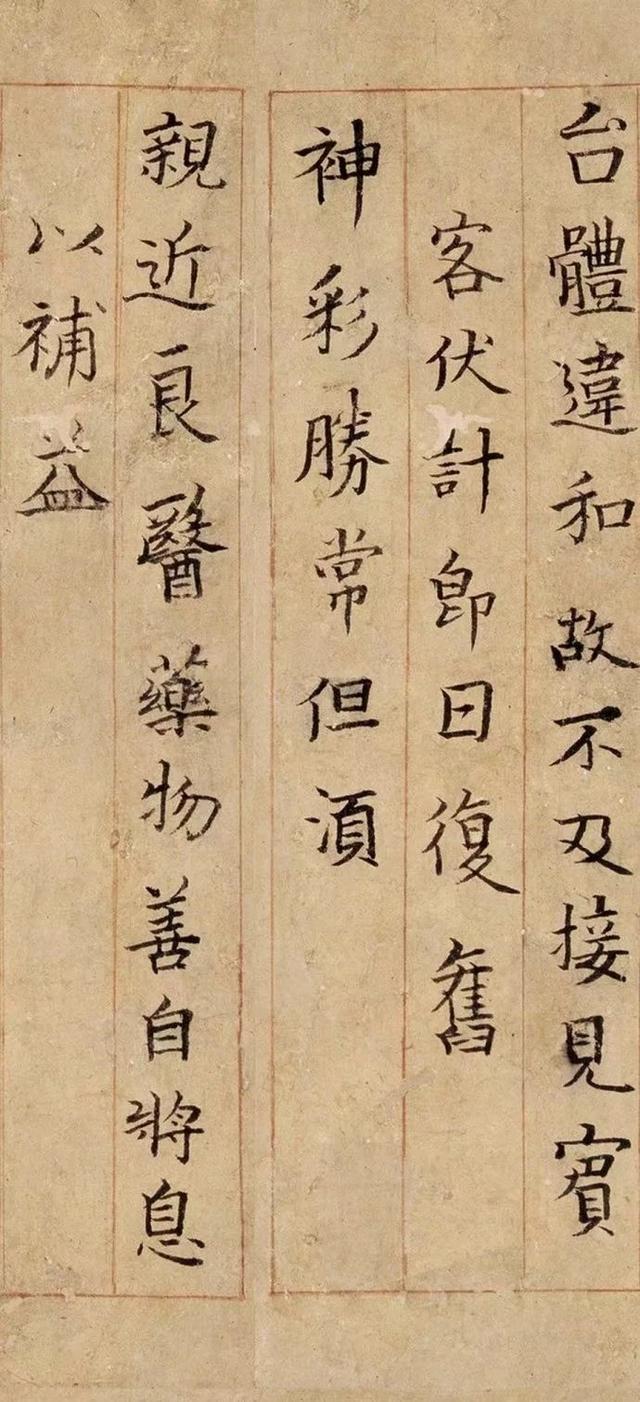 台體違和故不及接見賓
客伏計即日復舊
神彩勝常但須
親近良醫藥物善自將息
以補益